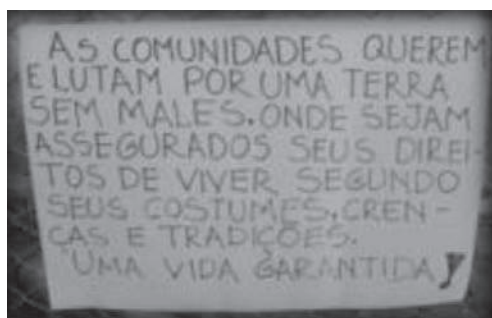 AS COMUNIDADES QUEREM
E LUTAM POR UMA TERRA
SEM MALES. ONDE SEJAM
ASSEGURADOS SEUS DIREI-
TOS DE VIVER SEGUNDO
SEUS COSTUMES, CREN-
ÇAS E TRADIÇÕES.
"UMA VIDA GARANTIDA